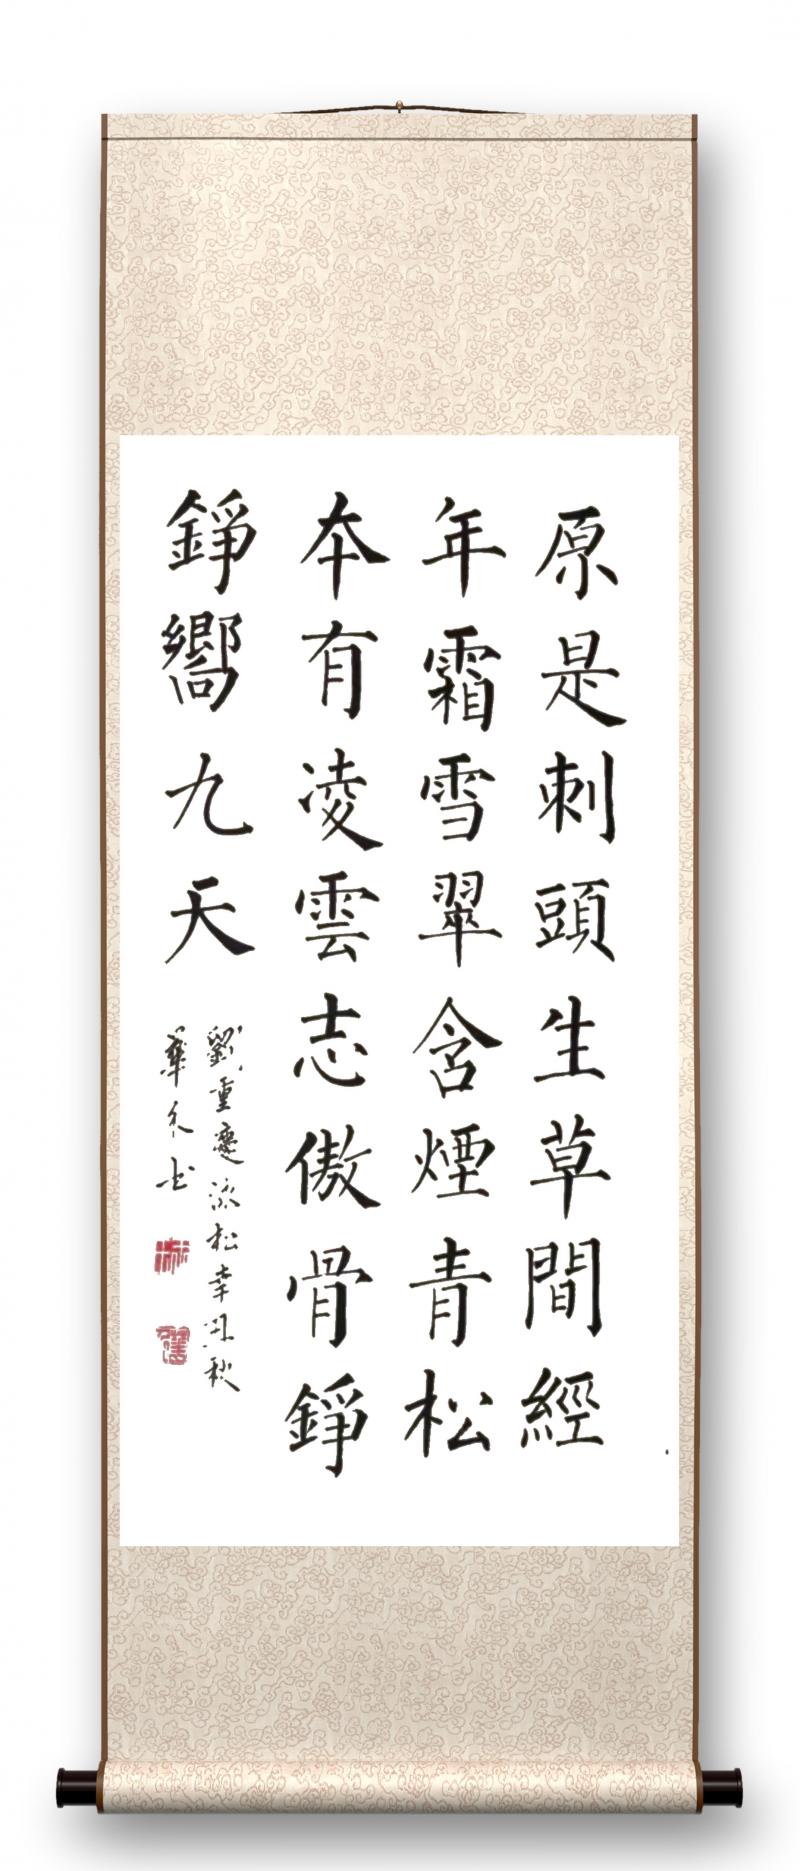 原是刺頭生草間經
年霜雪翠含煙青松
本有凌雲志傲骨錚
錚嚮九天
劉重慶流松辛丑秋
華永书